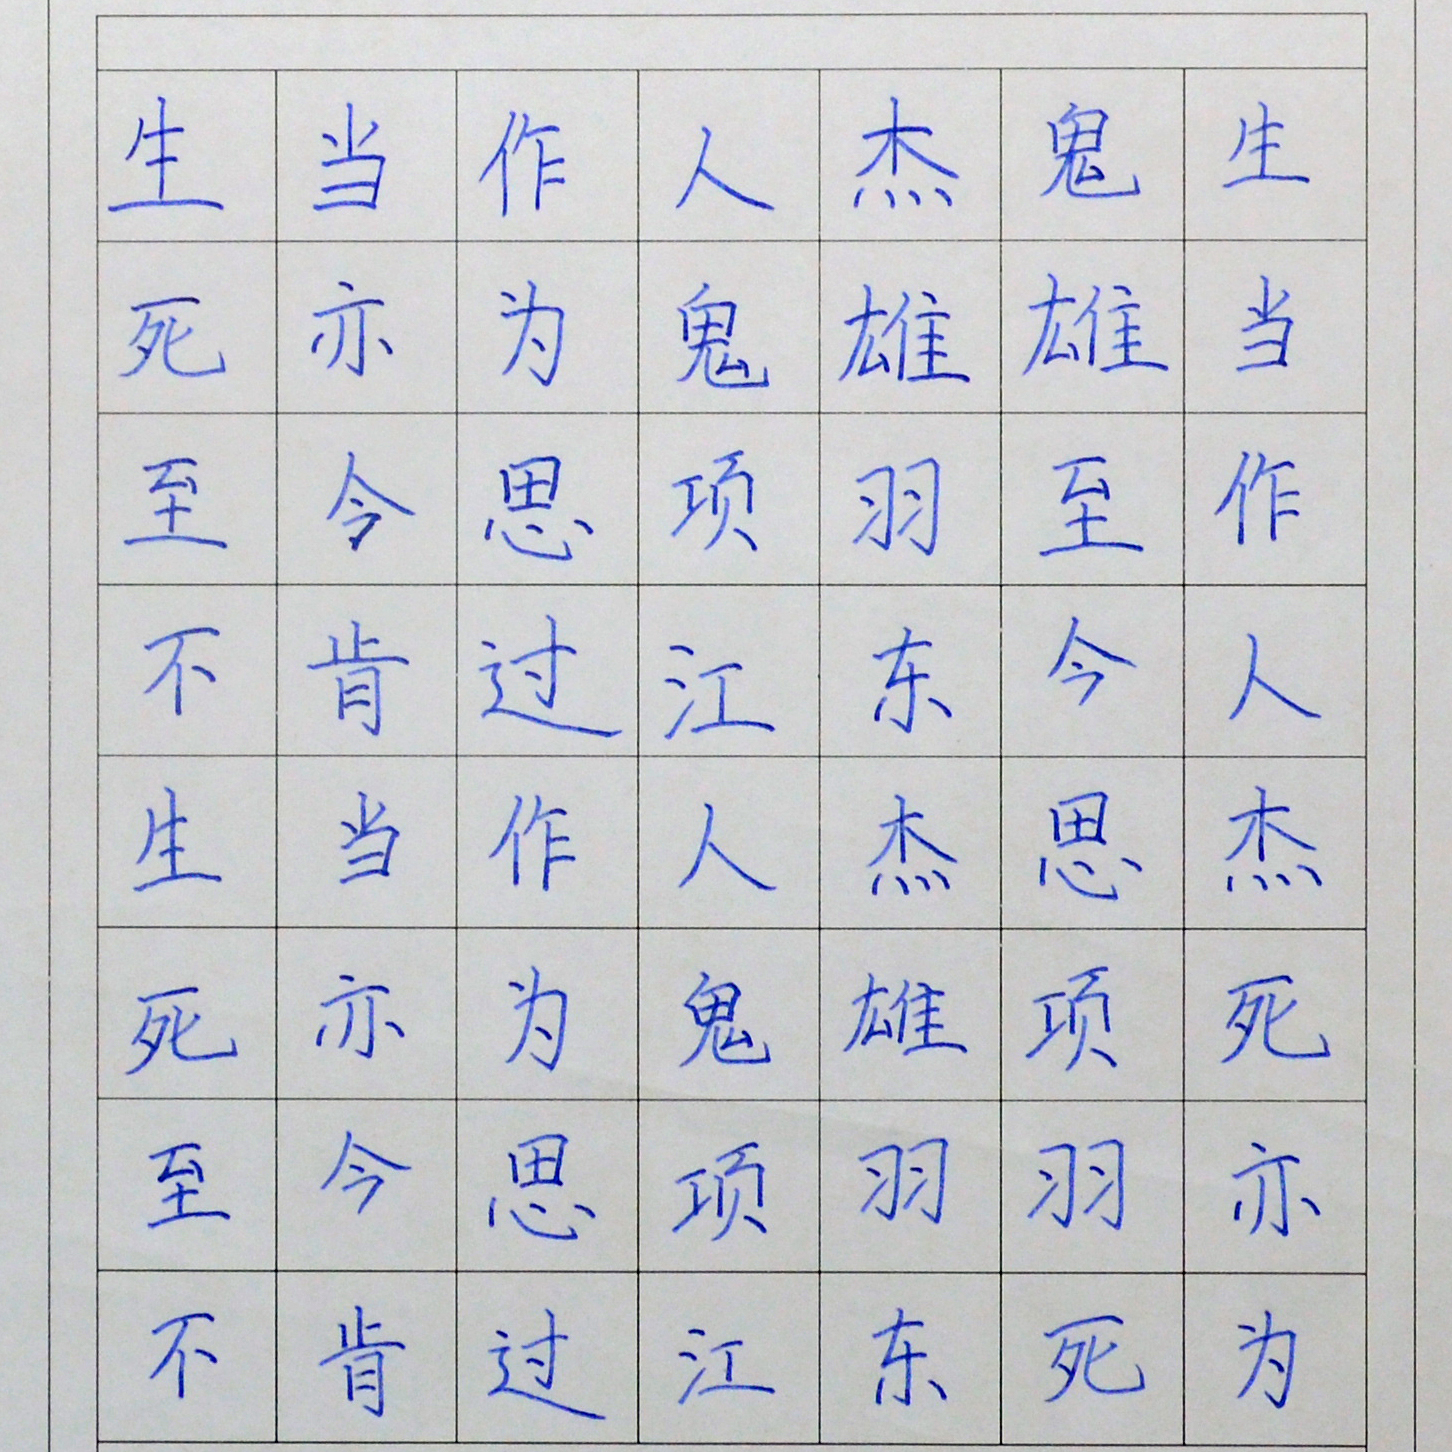 生当作人杰鬼生
死亦为鬼雄雄当
至今思项羽至作
不肯过江东今人
生当作人杰思杰
死亦为鬼雄项死
至今思项羽羽亦
不肯过江东死为